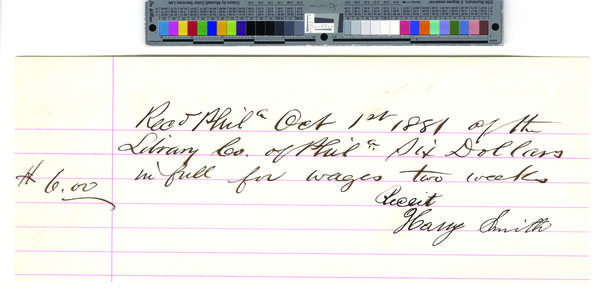 Recd Phila Oct 1st 1881 of the
Library Co. of Phila. Six Dollars
in full for wages two weeks
$ 6.00
Receit
Harry Smith